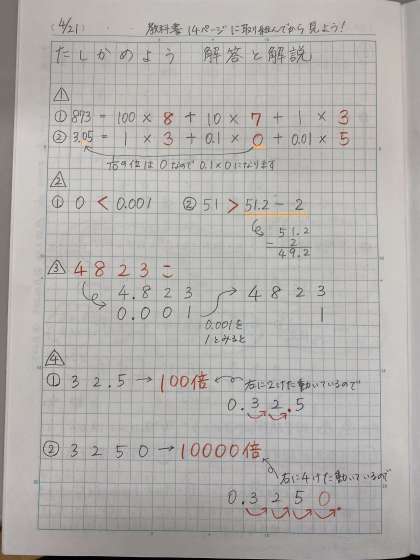 (4/21) 教科書14ページに取り組んでから見よう!
たしかめよう 解答と解説
1
① 873 = 100 × 8 + 10 × 7 + 1 × 3
② 3.05 = 1 × 3 + 0.1 × 0 + 0.01 × 5
1/10の位は0なので0.1×0になります
2
① 0 < 0.001 ② 51 > 51.2 - 2
51.2
- 2
49.2
3 4823こ
4.823 4823
0.001 1
0.001を
1とみると
4
① 32.5 → 100倍 右に2けた動いているので
0.32.5
② 3250 → 10000倍
右に4けた動いているので
0.3250.